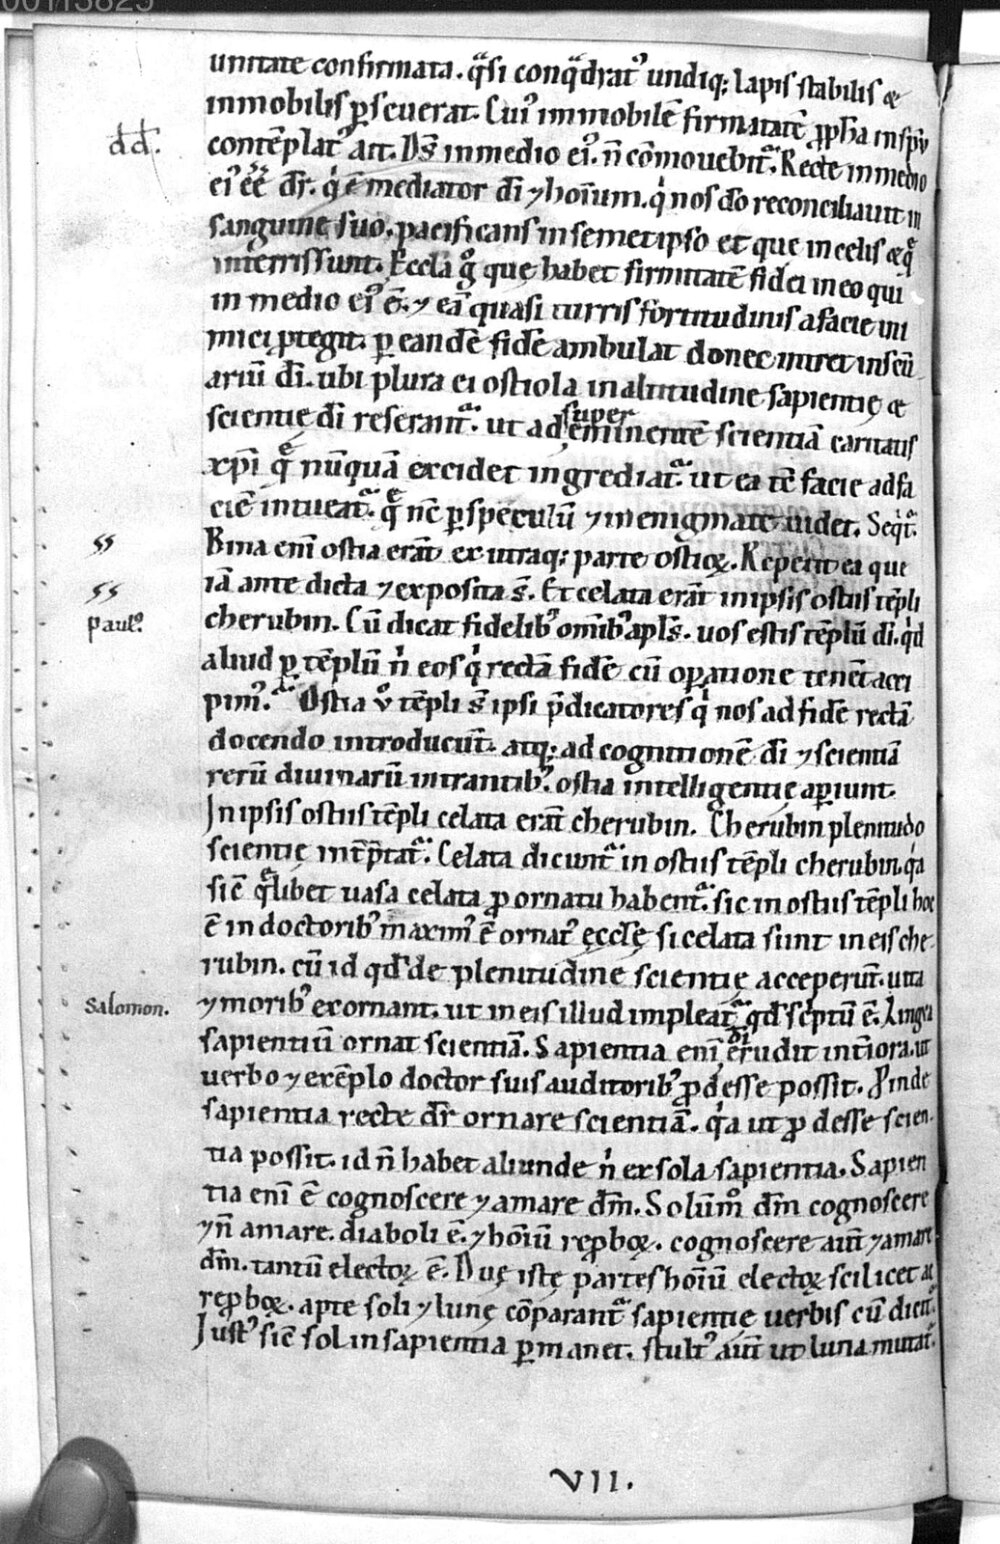 00113825
unitate confirmata. q̄si conq̄drat᾽ undiq; lapis stabilis &
inmobilis ꝑseuerat. Cui᾽ immobilē firmitatē ꝓph̄a in sp̄u
dd.
contēplat᾽ ait. D̄s in medio ei᾽. n̄ cōmouebit᾽. Recte in medio
ei᾽ ēē dr̄. q' ē mediator dī ⁊ hoīum. q' nos dō reconciliauit in
sanguine suo. pacificans in semetipso et quę in celis & q̄
in terris sunt. Eccl̄a g° quę habet firmitatē fidei in eo qui
in medio ei᾽ ē. ⁊ eā quasi turris fortitudinis a facie ini
mici ꝓtegit. ꝑ eandē fidē ambulat donec intret in sc̄u
ariū dī. ubi plura ei ostiola in altitudine sapientię &
scientię dī reserant᾽. ut ad super
eminentē scientiā caritatis
xp̄i q̄ nūquā excidet ingrediat᾽. ut ea tē facie ad fa
ciē intueat᾽. q̄ n̄c ꝑ speculū ⁊ in enigmate uidet. Seqit᾽.
ss
Bina enī ostia erāt ex utraq; parte ostioꝝ. Repetit ea que
ss
iā ante dicta ⁊ exposita s̄. Et celata erāt in ipsis ostiis tēpli
paul᾽.
cherubin. Cū dicat fidelib᾽ omīb᾽ apl̄s. uos estis tēplū dī. q'd
aliud ꝑ tēplū n' eos q' rectā fidē cū oꝑatione tenēt acci
pim᾽. Ostia v° tēpli s̄ ipsi p̄dicatores q' nos ad fidē rectā
docendo introducūt. atq; ad cognitionē dī ⁊ scientiā
rerū diuinarū intrantib᾽ ostia intelligentię aꝑiunt.
In ipsis ostiis tēpli celata erāt cherubin. Cherubin plenitudo
scientię int̄p̄tat᾽. Celata dicunt᾽ in ostiis tēpli cherubin. q'a
sic̄ q̄libet uasa celata ꝓ ornatu habent᾽. sic in ostiis tēpli hoc
ē in doctorib᾽ maxim᾽ ē ornat᾽ ęccl̄ę si celata sunt in eis che-
rubin. cū id qd̄ de plenitudine scientię acceperūt. uita
Salomon.
⁊ morib᾽ exornant. ut in eis illud impleat᾽ qd̄ sc̄ptū ē. Lingua
sapientiū ornat scientiā. Sapientia enī erudit int̄iora. ut
uerbo ⁊ exēplo doctor suis auditorib᾽ ꝓdesse possit. Proinde
sapientia recte dr̄ ornare scientiā. q'a ut ꝓdesse scien-
tia possit. id n̄ habet aliunde n' ex sola sapientia. Sapien
tia enī ē cognoscere ⁊ amare dm̄. Solūm° dm̄ cognoscere
⁊ n̄ amare. diaboli ē. ⁊ hoīū reꝓboꝝ. cognoscere aūt ⁊ amare
dm̄. tantū electoꝝ ē. Duę istę partes hoīū electoꝝ scilicet ac
reꝓboꝝ. apte soli ⁊ lunę cōparant᾽ sapientię uerbis cū dicit᾽.
Iust᾽ sic̄ sol in sapientia ꝑmanet. stult᾽ aūt ut luna mutat᾽.
VII.